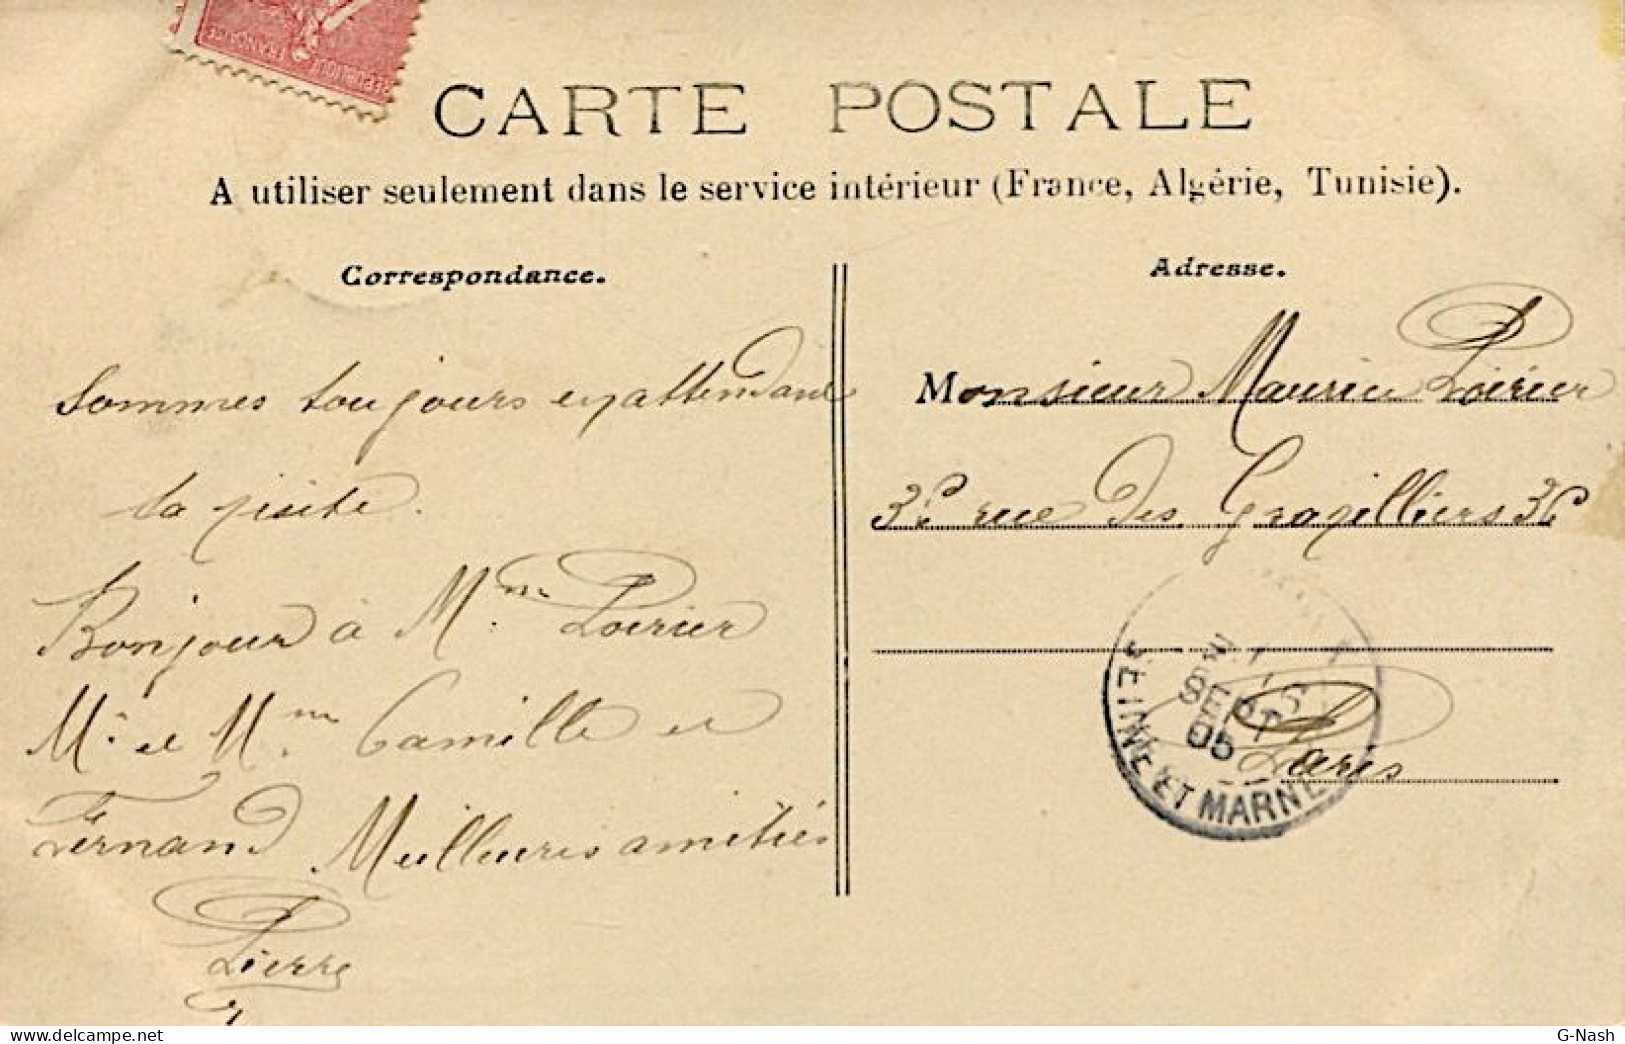 REPUBLIQUE FRANÇAISE
CARTE POSTALE
A utiliser seulement dans le service intérieur (France, Algérie, Tunisie).
Correspondance.
Sommes toujours en attendant
ta visite.
Bonjour à Mme Poirier
Mr et Mme Camille et
Fernand Meilleures amitiés
Pierre
Adresse.
Monsieur Maurice Poirier
36 rue des Gravilliers 36
Paris
SEPT
05
SEINE ET MARNE
G-Nash